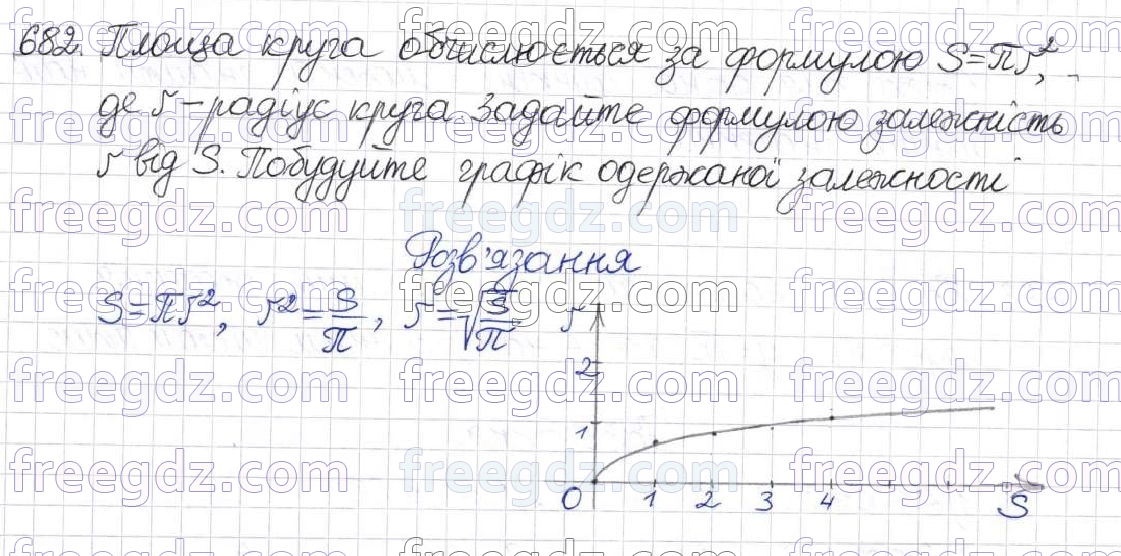 682. Площа круга обчислюється за формулою S=πr²,
де r-радіус круга. Задайте формулою залежність
r від S. Побудуйте графік одержаної залежності
Розв'язання
S=πr², r²=S/π, r=√(S/π)
r
2
1
0 1 2 3 4 S
freegdz.com freegdz.com freegdz.com
freegdz.com freegdz.com freegdz.com
freegdz.com freegdz.com freegdz.com
freegdz.com freegdz.com freegdz.com
freegdz.com freegdz.com freegdz.com
freegdz.com freegdz.com freegdz.com
freegdz.com freegdz.com freegdz.com